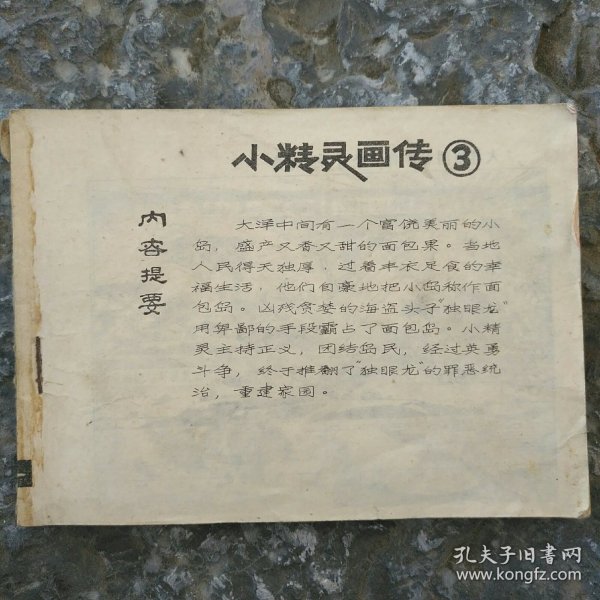 小精灵画传③
内容提要
大洋中间有一个富饶美丽的小
岛，盛产又香又甜的面包果。当地
人民得天独厚，过着丰衣足食的幸
福生活，他们自豪地把小岛称作面
包岛。凶残贪婪的海盗头子“独眼龙”
用卑鄙的手段霸占了面包岛。小精
灵主持正义，团结岛民，经过英勇
斗争，终于推翻了“独眼龙”的罪恶统
治，重建家园。
孔夫子旧书网
www.kongfz.com